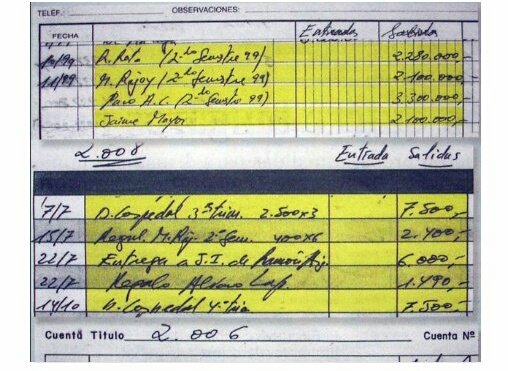 TELEF.: OBSERVACIONES:
FECHA Entradas Salidas
10/99 R. Rato (2do Semestre 99) 2.280.000,-
11/99 M. Rajoy (2do Semestre 99) 2.100.000,-
Paco A.C. (2do Semestre 99) 3.300.000,-
Jaime Mayor 2.100.000,-
2.008 Entrada Salidas
7/7 D. Cospedal 3er trim. 2.500x3 7.500,-
15/7 Regul. M. Raj. 2º Sem. 400x6 2.400,-
22/7 Entrega a J.I. de 6.000,-
22/7 Regalo Lap. 1.490,-
14/10 D. Cospedal 4º trim 7.500,-
Cuenta Titulo 2.006 Cuenta Nº